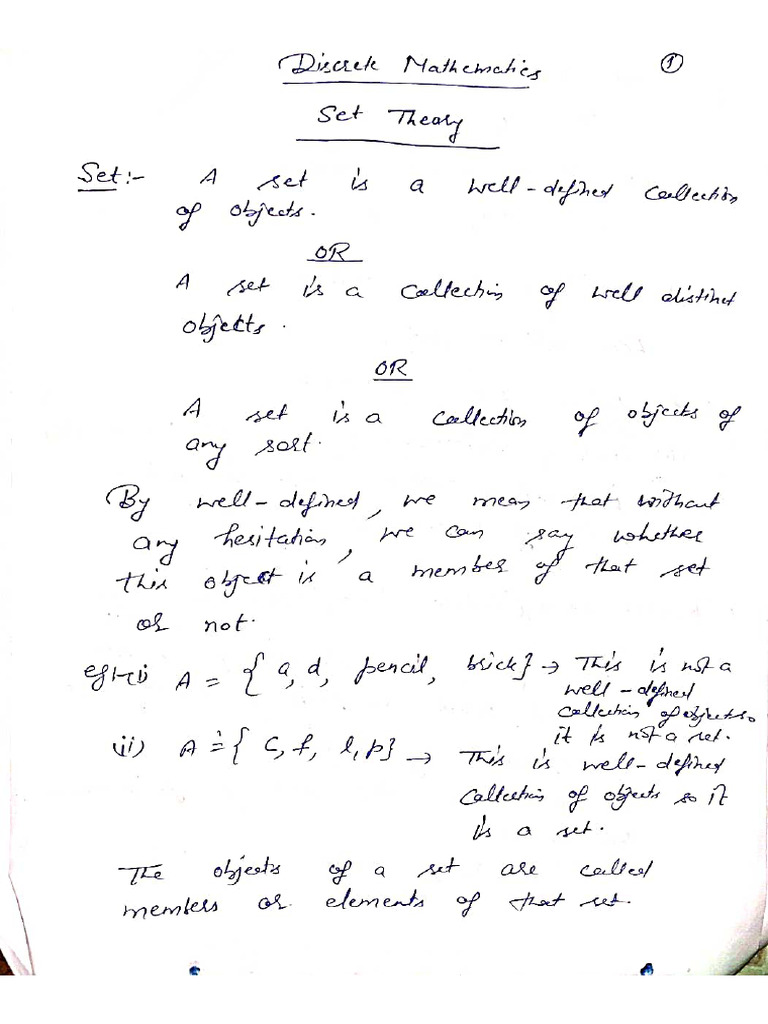 Discrete Mathematics ①
Set Theory
Set:- A set is a well-defined collection
of objects.
OR
A set is a collection of well distinct
objects.
OR
A set is a collection of objects of
any sort.
By well-defined, we mean that without
any hesitation, we can say whether
this object is a member of that set
or not.
eg:-(i) A = { a, d, pencil, brick} → This is not a
well-defined
collection of objects so
it is not a set.
(ii) A = { c, f, l, p} → This is well-defined
collection of objects so it
is a set.
The objects of a set are called
members or elements of that set.